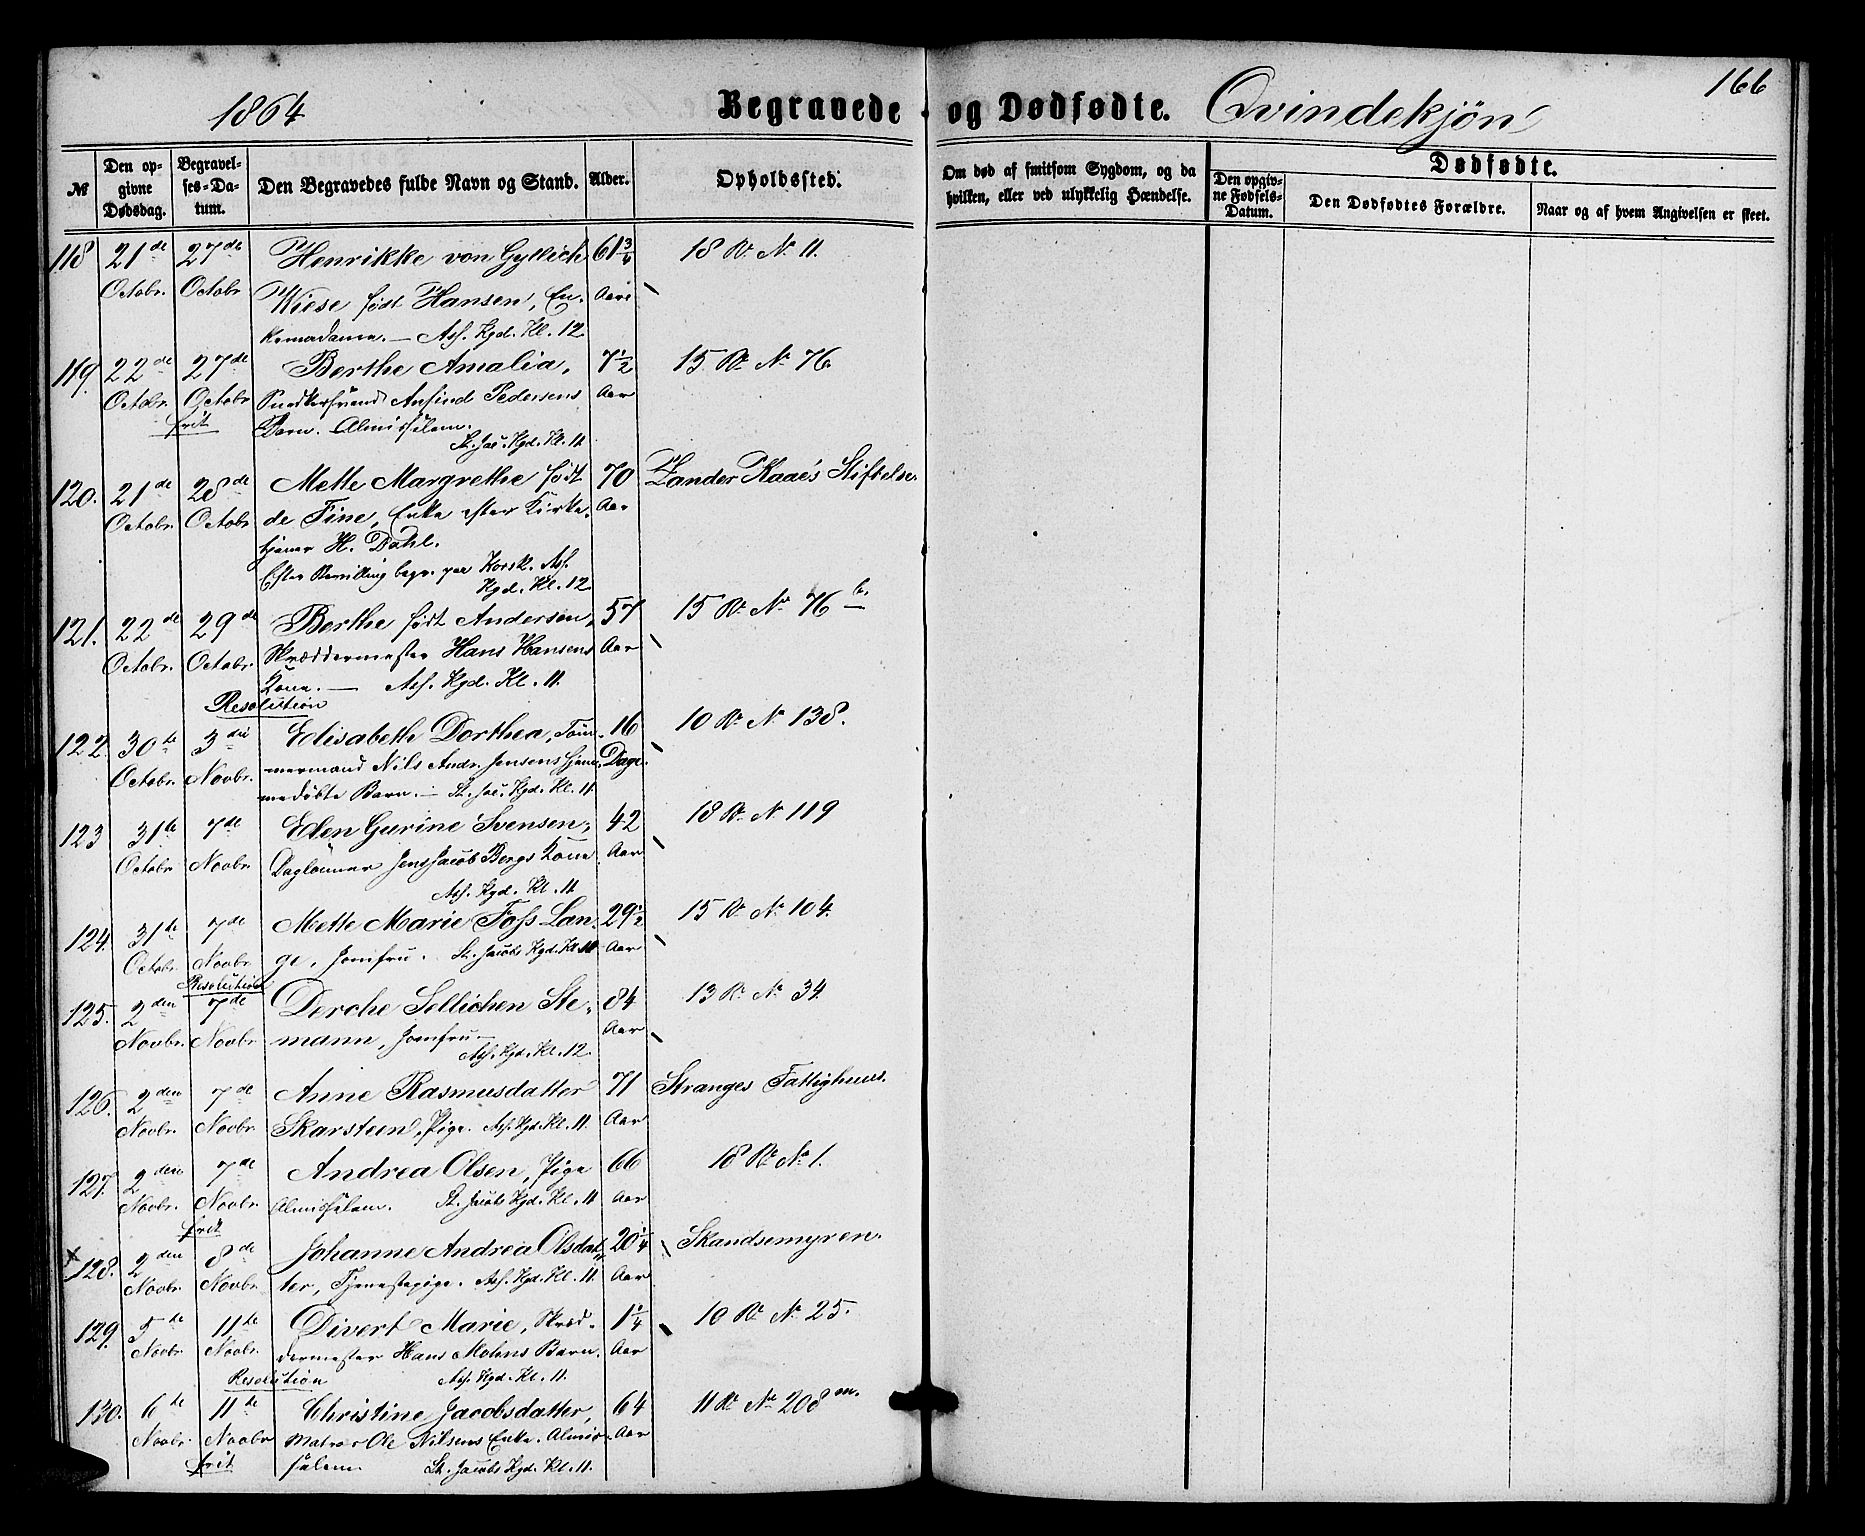 166
1864
Begravede og Dødfødte. Qvindekjøn
№
Den opgivne Dødsdag.
Begravelses-Datum.
Den Begravedes fulde Navn og Stand.
Alder.
Opholdssted.
Om død af smitsom Sygdom, og da hvilken, eller ved ulykkelig Hændelse.
Dødfødte.
Den opgivne Fødsels-Datum.
Den Dødfødtes Forældre.
Naar og af hvem Angivelsen er skeet.
118 21de 27de Henrikke von Gyllich 61 3/4 18 R. No 11.
Octobr. Octobr Wiese født Hansen, En- Aar
kemadame. — Ass. Kgd. Kl. 12
119. 22de 27de Berthe Amalia, 7 1/2 15 R. No 76.
Octobr. Octobr Snedkersvend Anfind Pedersens Aar
frit Barn. Almisselem.
St. Jac. Kgd. Kl. 11
120. 21de 28de Mette Margrethe født 70 Zander Kaaes Stiftelse.
Octobr Octobr de Fine, Enke efter Kirke- Aar
tjener H. Dahl.
Efter Bevilling begr. paa Korsk. Ass.
Kgd. Kl. 12
121. 22de 29de Berthe født Andersen, 57 15 R. No 76 b.
Octobr. Octobr. Skræddermester Hans Hansens Aar
Kone. — Ass. Kgd. Kl. 11.
Resolution
122. 30te 3die Elisabeth Dorthea, Tøm- 16 10 R. No 138.
Octobr. Novbr. mermand Nils Andr. Jensens hjem- Dage.
medøbte Barn. — St. Jac. Kgd. Kl. 11
123 31te 7de Elen Gurine Svensen, 42 18 R. No 119
Octobr Novbr. Daglønner Jens Jacob Bergs Kone Aar
Ass. Kgd. Kl. 11
124. 31te 7de Mette Marie Foss Lan- 29 1/2 15 R. No 104.
Octobr Novbr ge, Jomfru. St. Jacobs Kgd. Kl. 11 Aar
Resolution
125. 2den 7de Derche Sellichen Ste- 84 13 R. No 34.
Novbr. Novbr mann, Jomfru — Aar
Ass. Kgd. Kl. 12.
126. 2den 7de Anne Rasmusdatter 71 Stranges Fattighuus.
Novbr. Novbr. Skarstun, Pige. Ass. Kgd. Kl. 11. Aar
127. 2den 7de Andrea Olsen, Pige 66 18 R. No 1.
Novbr. Novbr. Almisselem. St. Jacobs Kgd. Kl. 11 Aar
frit
× 128. 2den 8de Johanne Andrea Olsdat- 20 1/4 Skandsemyren.
Novbr. Novbr. ter, Tjenestepige. Ass. Kgd. Kl. 11. Aar
129. 5te 11te Divert Marie, Skræd- 1 1/4 10 R. No 25.
Novbr. Novbr. dermester Hans Mohns Barn. Aar
Resolution Ass. Kgd. Kl. 11.
130. 6te 11te Christine Jacobsdatter, 64 11 R. No 208 m.
Novbr. Novbr Matros Ole Nilsens Enke. Almis- Aar
frit selem St. Jacobs Kgd. Kl. 11.